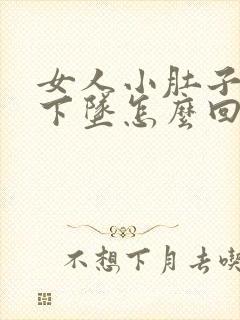 女人小肚子
下墜怎麼回
不想下月去喫